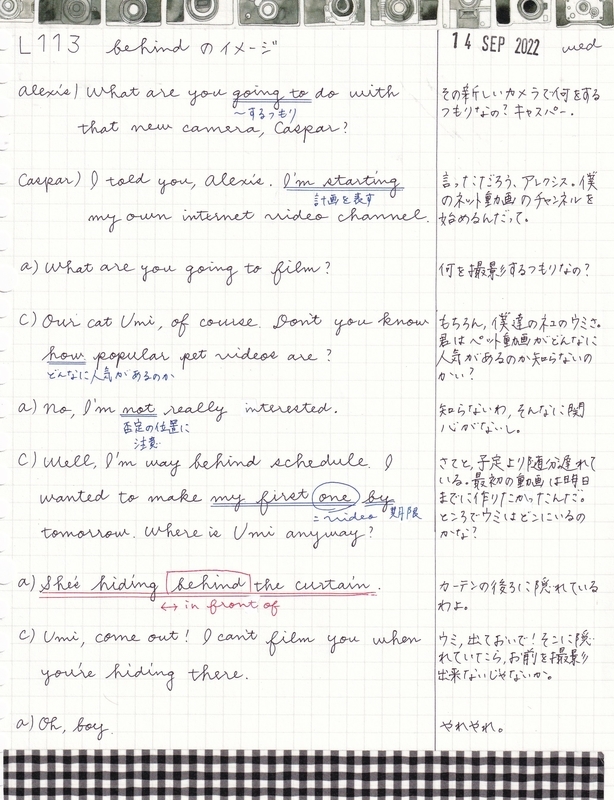 L113 behind のイメージ
14 SEP 2022 wed
Alexis) What are you going to do with
〜するつもり
that new camera, Caspar?
その新しいカメラで何をする
つもりなの？キャスパー．
Caspar) I told you, Alexis. I'm starting
計画を表す
my own internet video channel.
言っただだろう、アレクシス。僕
のネット動画のチャンネルを
始めるんだって。
a) What are you going to film?
何を撮影するつもりなの？
C) Our cat Umi, of course. Don't you know
how popular pet videos are?
どんなに人気があるのか
もちろん，僕達のネコのウミさ。
君はペット動画がどんなに
人気があるのか知らないの
かい？
a) No, I'm not really interested.
否定の位置に
注意
知らないわ，そんなに関
心がないし。
C) Well, I'm way behind schedule. I
wanted to make my first one by
=video 期限
tomorrow. Where is Umi anyway?
さてと，予定より随分遅れて
いる。最初の動画は明日
までに作りたかったんだ。
ところでウミはどこにいるの
かな？
a) She's hiding behind the curtain.
↔ in front of
カーテンの後ろに隠れている
わよ。
C) Umi, come out! I can't film you when
you're hiding there.
ウミ，出ておいで！そこに隠
れていたら，お前を撮影
出来ないじゃないか。
a) Oh, boy.
やれやれ。